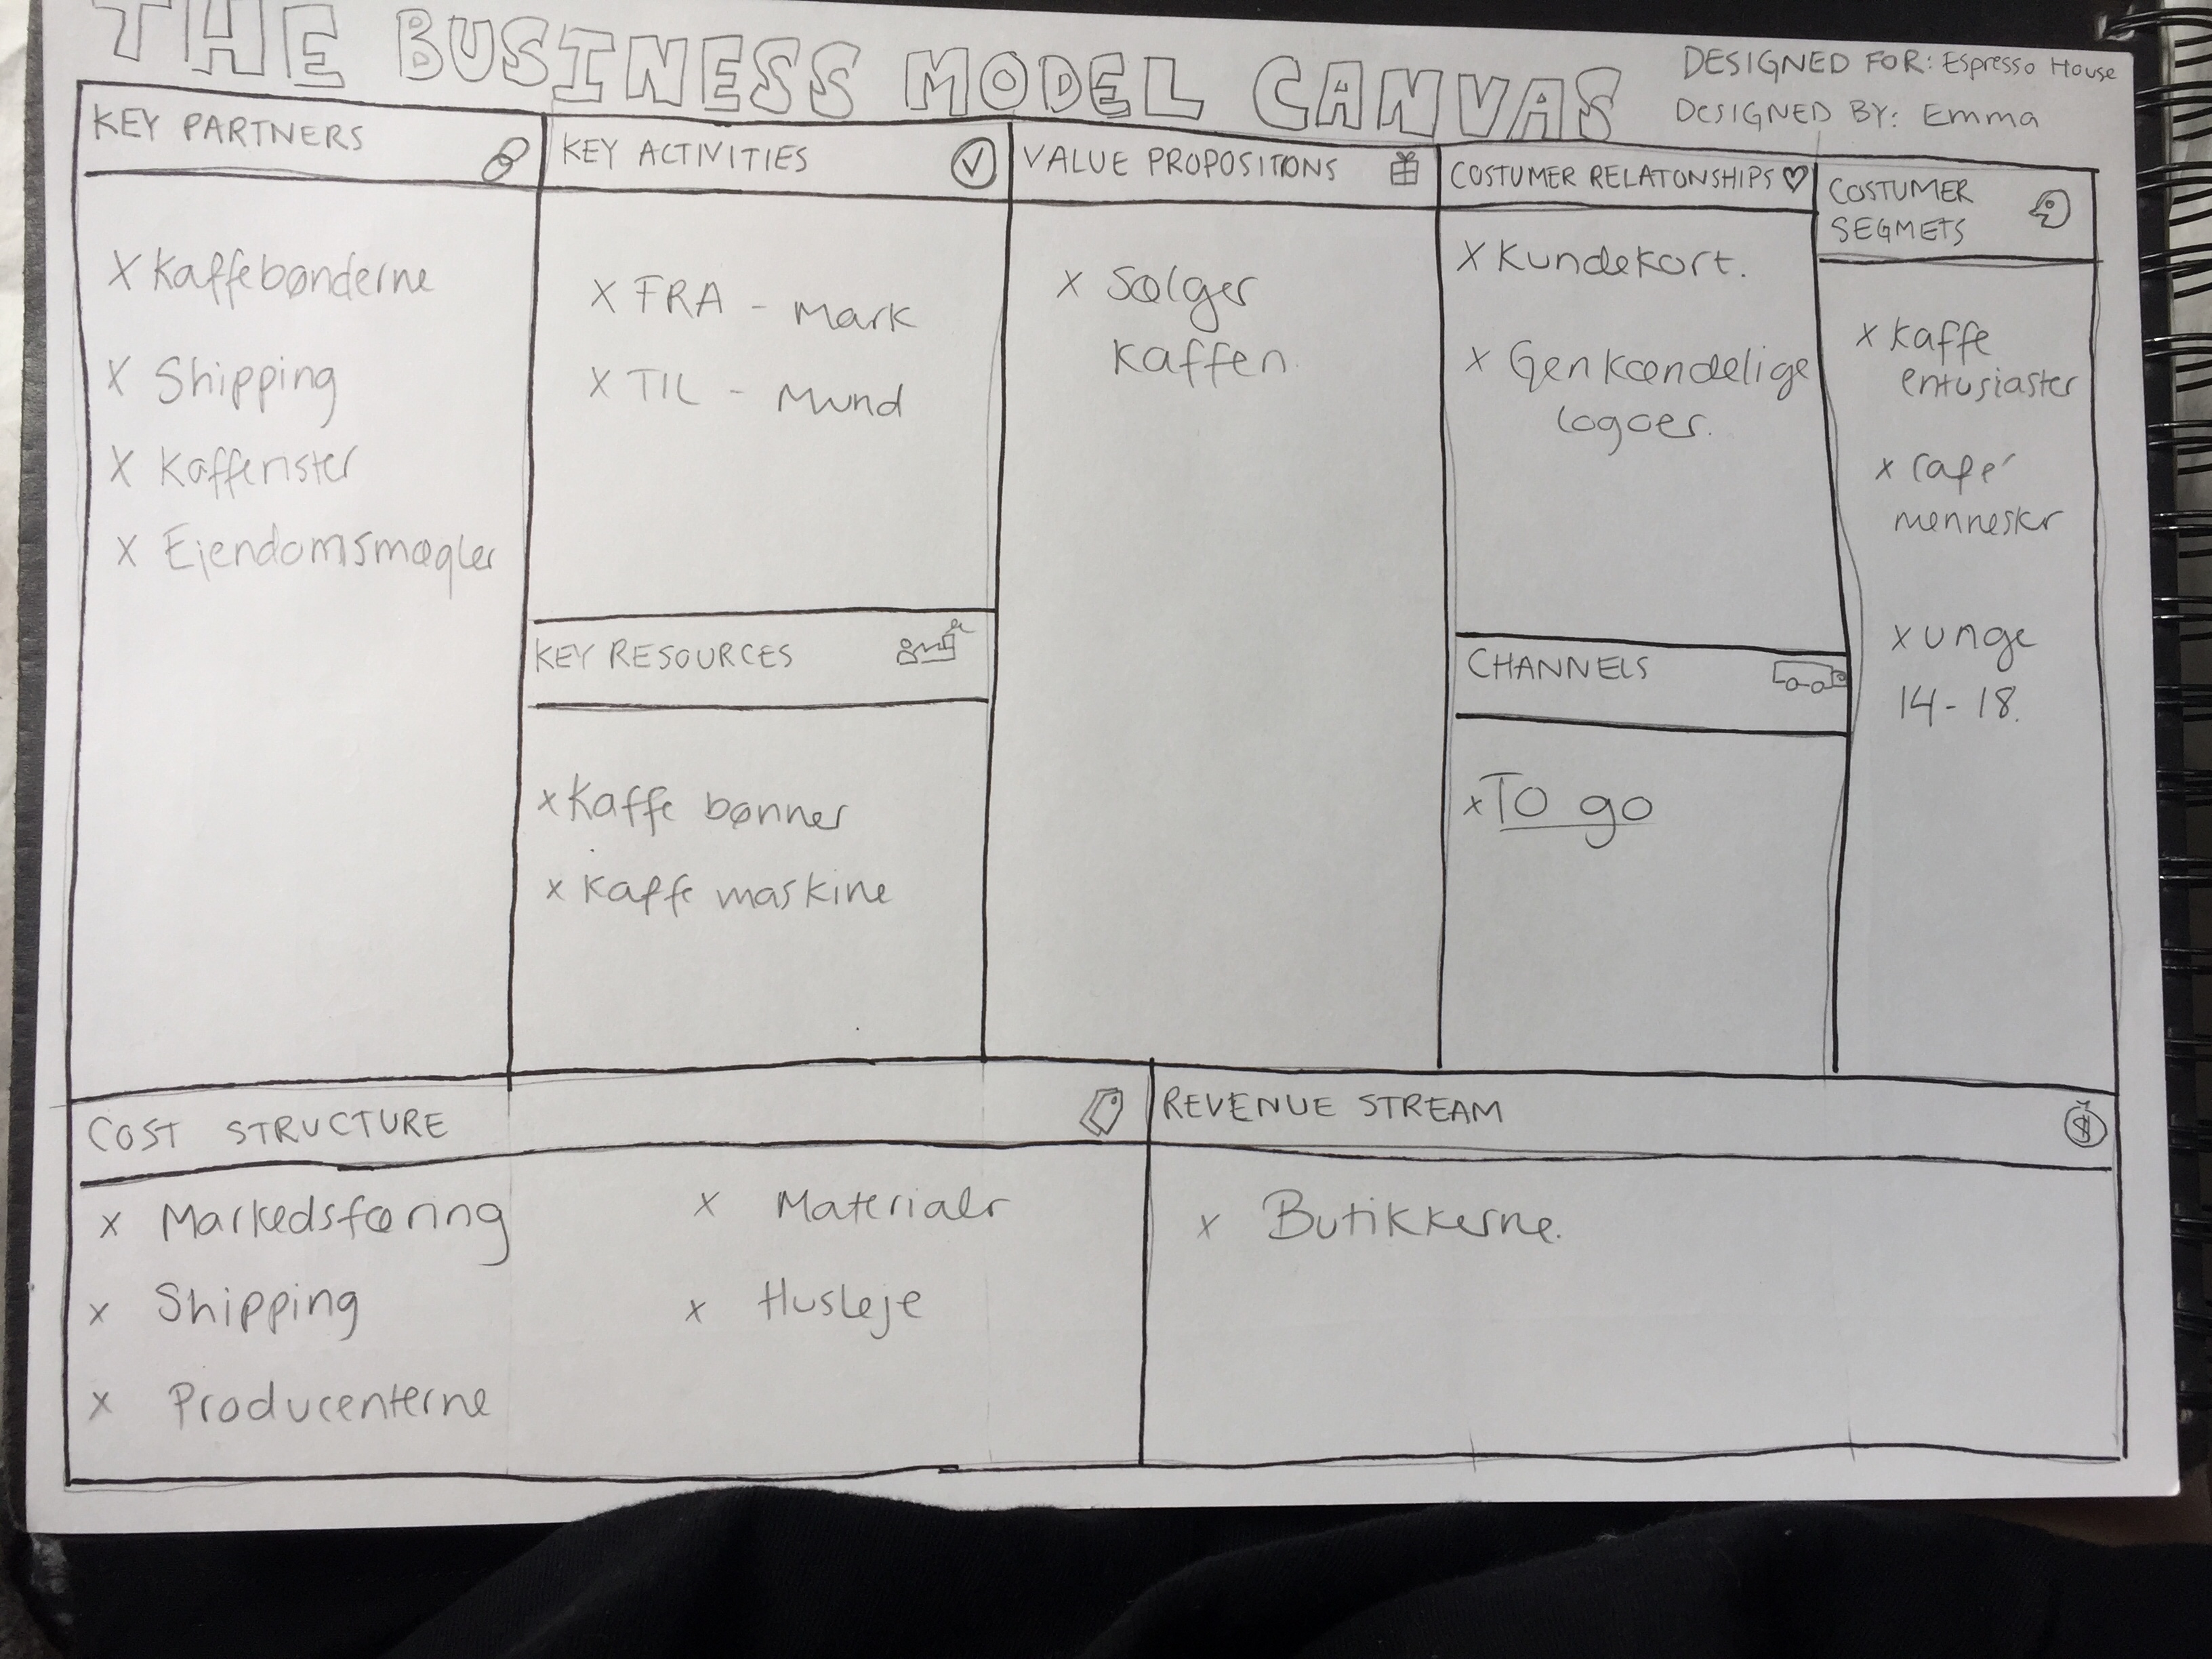 THE BUSINESS MODEL CANVAS
DESIGNED FOR: Espresso House
DESIGNED BY: Emma
KEY PARTNERS
X Kaffebønderne
X Shipping
X Kafferister
X Ejendomsmægler
KEY ACTIVITIES
X FRA - Mark
X TIL - Mund
KEY RESOURCES
x Kaffe bønner
x Kaffe maskine
VALUE PROPOSITIONS
x Sælger
kaffen.
COSTUMER RELATONSHIPS
X Kundekort.
x Genkændelige
logoer.
CHANNELS
x To go
COSTUMER
SEGMETS
x Kaffe
entusiaster
x Café
menneskr
x unge
14-18.
COST STRUCTURE
x Markedsføring
x Shipping
x Producenterne
x Materialr
x Husleje
REVENUE STREAM
x Butikkerne.